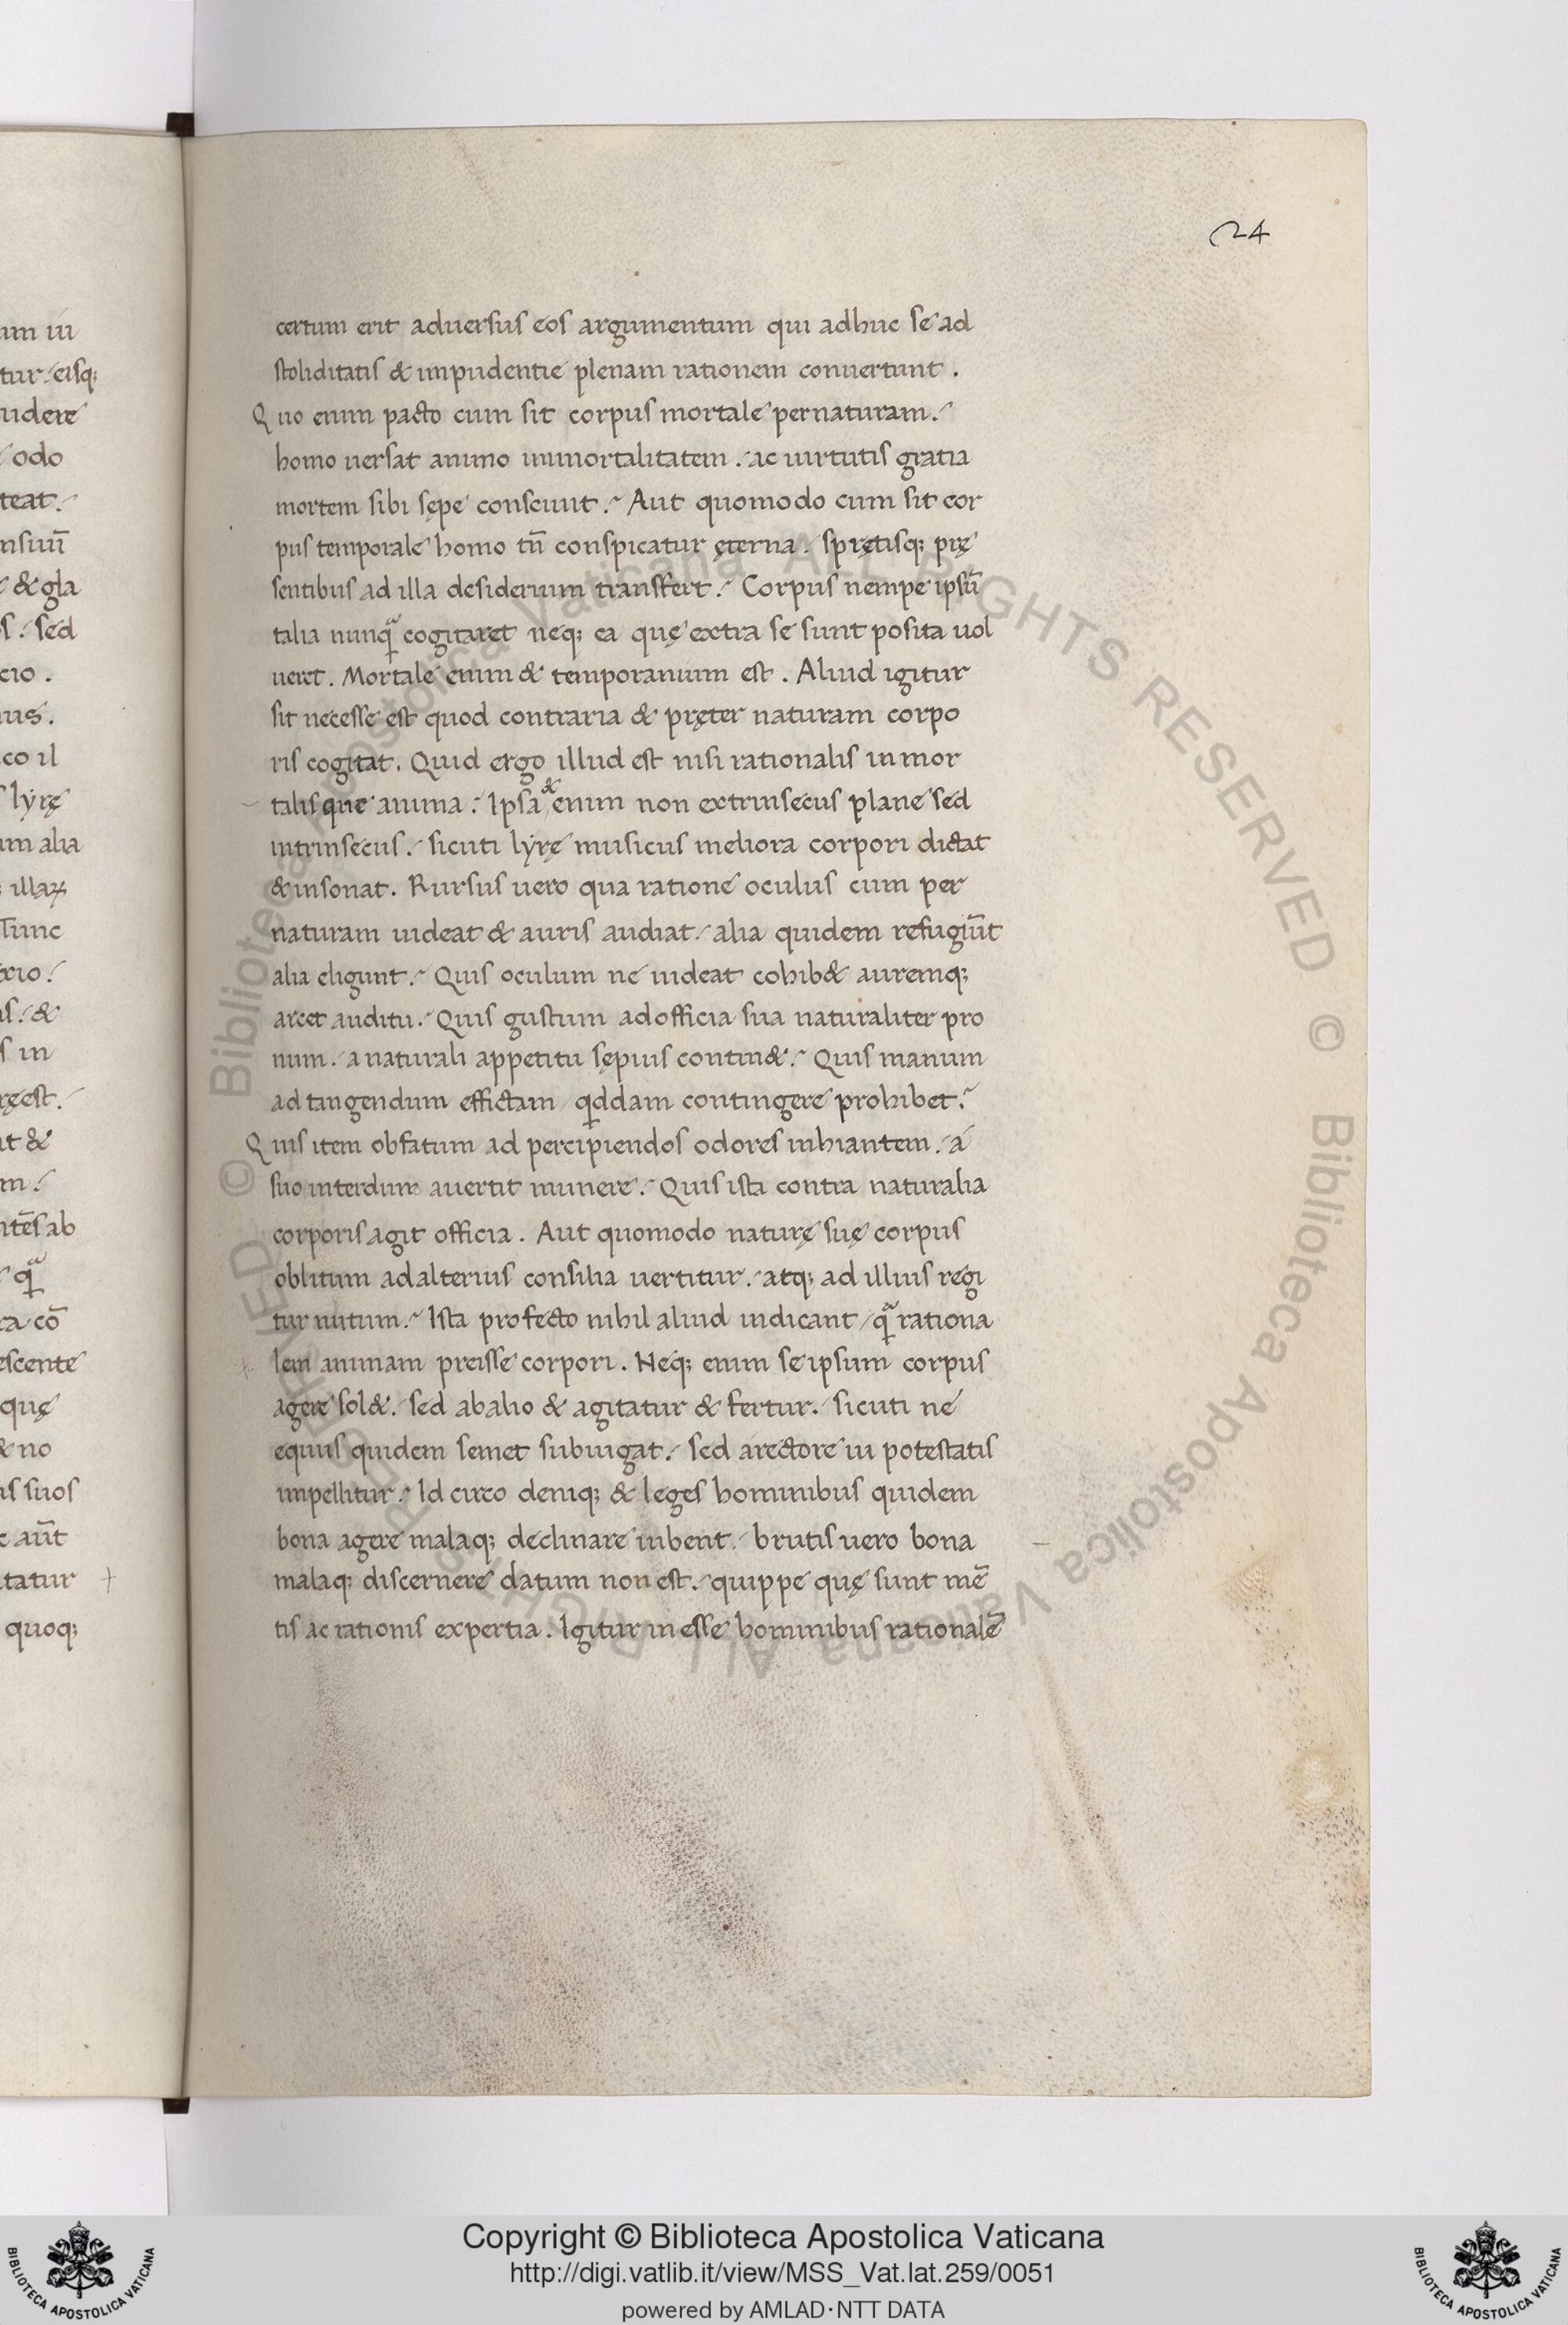 24
um ui
tur. eisq;
udere
odo
teat.
nsuū
& gla
s. sed
cio.
us.
co il
lyrę
um alia
illaꝝ
Tunc
xio.
s. &
s in
ręest.
it &
m.
ntēs ab
q̣ͣ
ra cō
escente
quę
& no
is suos
c aūt
tatur
quoq;
certum erit aduersus eos argumentum qui adhuc se ad
stoliditatis & impudentie plenam rationem conuertunt .
Quo enim pacto cum sit corpus mortale pernaturam.
homo uersat animo inmortalitatem . ac uirtutis gratia
mortem sibi sępe consciunt . Aut quomodo cum sit cor
pus temporale homo tn̄ conspicatur ęterna . spretisq; prę
sentibus ad illa desiderium transfert . Corpus nempe ipsū
talia nunqͣ cogitaret neq; ea quę extra se sunt posita uol
ueret . Mortale enim & temporanium est . Aliud igitur
sit necesse est quod contraria & pręter naturam corpo
ris cogitat. Quid ergo illud est nisi rationalis inmor
talisque anima . Ipsa & enim non extrinsecus plane sed
intrinsecus . sicuti lyrę musicus meliora corpori dictat
& insonat. Rursus uero qua ratione oculus cum per
naturam uideat & auris audiat . alia quidem refugiūt
alia eligunt . Quis oculum ne uideat cohib& auremq;
arcet auditu . Quis gustum adofficia sua naturaliter pro
num . a naturali appetitu sępius contin& . Quis manum
ad tangendum effictam qddam contingere prohibet .
Quis item obfatum ad percipiendos odores inhiantem . a
suo interdum auertit munere . Quis ista contra naturalia
corporis agit officia . Aut quomodo naturę suę corpus
oblitum adalterius consilia uertitur . atq; ad illius regi
tur nutum . Ista profecto nihil aliud indicant qͣ rationa
lem animam preisse corpori . Neq; enim se ipsum corpus
agere sol& . sed abalio & agitatur & fertur . sicuti ne
equus quidem semet subiugat . sed arectore ui potestatis
impellitur . Id circo deniq; & leges hominibus quidem
bona agere malaq; declinare iubent . brutis uero bona
malaq; discernere datum non est . quippe quę sunt mē
tis ac rationis expertia . Igitur inesse hominibus rationalē
© Biblioteca Apostolica Vaticana ALL RIGHTS RESERVED
© Biblioteca Apostolica Vaticana ALL RIGHTS RESERVED
Copyright © Biblioteca Apostolica Vaticana
http://digi.vatlib.it/view/MSS_Vat.lat.259/0051
powered by AMLAD·NTT DATA
BIBLIOTECA APOSTOLICA VATICANA
BIBLIOTECA APOSTOLICA VATICANA